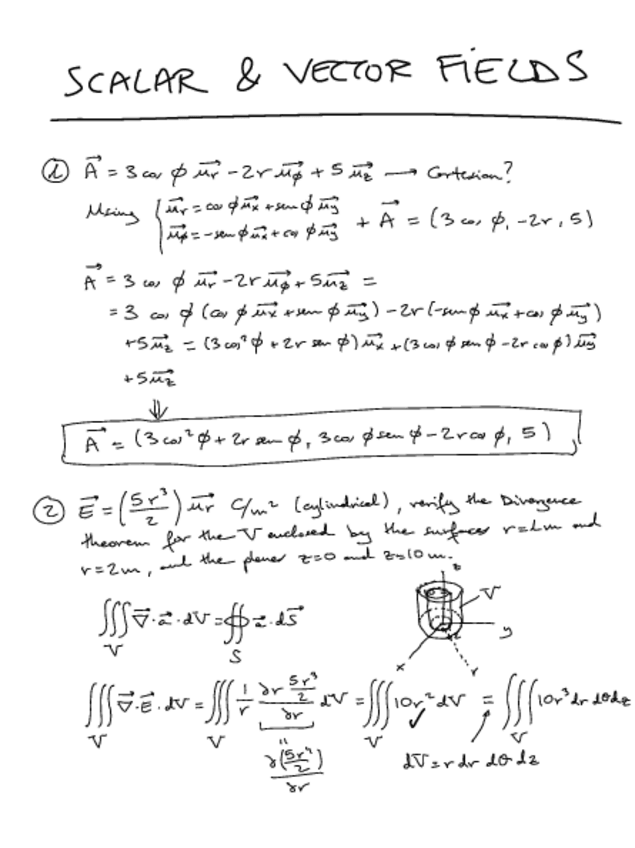 SCALAR & VECTOR FIELDS
① A⃗ = 3 cos ϕ u⃗r - 2r u⃗ϕ + 5 u⃗z → Cartesian?
Using { u⃗r = cos ϕ u⃗x + sen ϕ u⃗y
u⃗ϕ = -sen ϕ u⃗x + cos ϕ u⃗y + A⃗ = (3 cos ϕ, -2r, 5)
A⃗ = 3 cos ϕ u⃗r - 2r u⃗ϕ + 5 u⃗z =
= 3 cos ϕ (cos ϕ u⃗x + sen ϕ u⃗y) - 2r (-sen ϕ u⃗x + cos ϕ u⃗y)
+ 5 u⃗z = (3 cos² ϕ + 2r sen ϕ) u⃗x + (3 cos ϕ sen ϕ - 2r cos ϕ) u⃗y
+ 5 u⃗z
⇓
A⃗ = (3 cos² ϕ + 2r sen ϕ, 3 cos ϕ sen ϕ - 2r cos ϕ, 5)
② E⃗ = (5r³/2) u⃗r C/m² (cylindrical), verify the Divergence
theorem for the V enclosed by the surfaces r=1m and
r=2m, and the planes z=0 and z=10m.
∭V ∇⃗·a⃗·dV = ∯S a⃗·dS⃗
z V y x r
∭V ∇⃗·E⃗·dV = ∭V 1/r ∂r 5r³/2 / ∂r dV = ∭V 10r² dV = ∭V 10r³ dr dθ dz
" ∂(5r⁴/2)/∂r
dV = r dr dθ dz